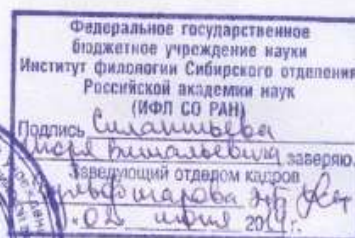 Федеральное государственное
бюджетное учреждение науки
Институт филологии Сибирского отделения
Российской академии наук
(ИФЛ СО РАН)
Подпись Силантьева
Игоря Витальевича заверяю.
Заведующий отделом кадров
02 июня